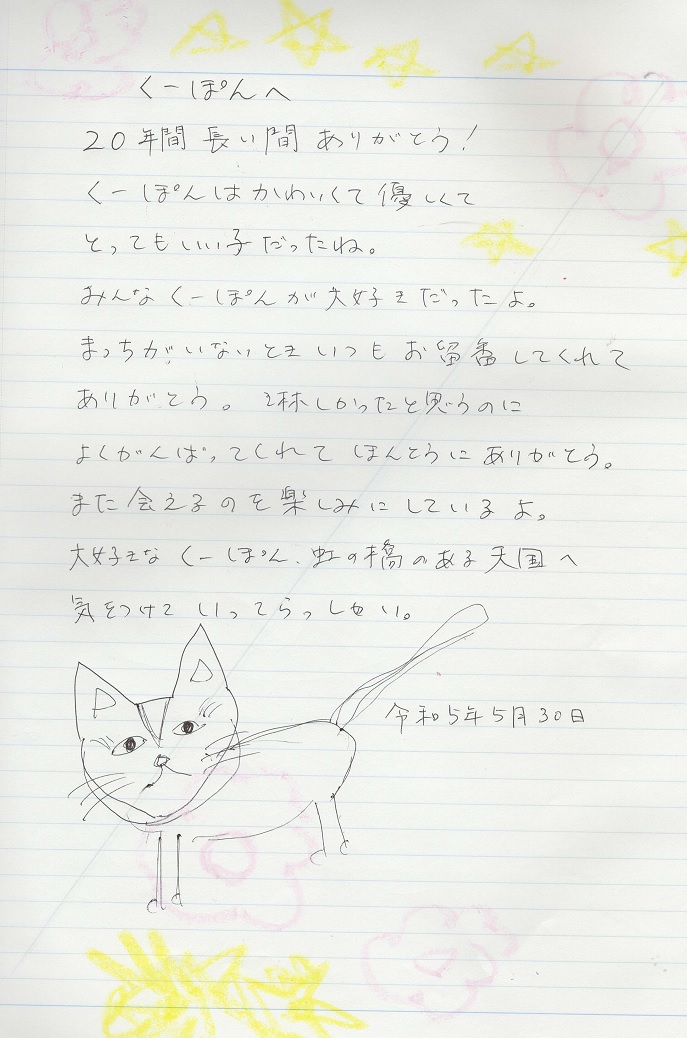 くーぽんへ
20年間 長い間 ありがとう!
くーぽんはかわいくて優しくて
とってもいい子だったね。
みんなくーぽんが大好きだったよ。
まっちがいないときいつもお留番してくれて
ありがとう。淋しかったと思うのに
よくがんばってくれてほんとうにありがとう。
また会えるのを楽しみにしているよ。
大好きなくーぽん、虹の橋のある天国へ
気をつけていってらっしゃい。
令和5年5月30日